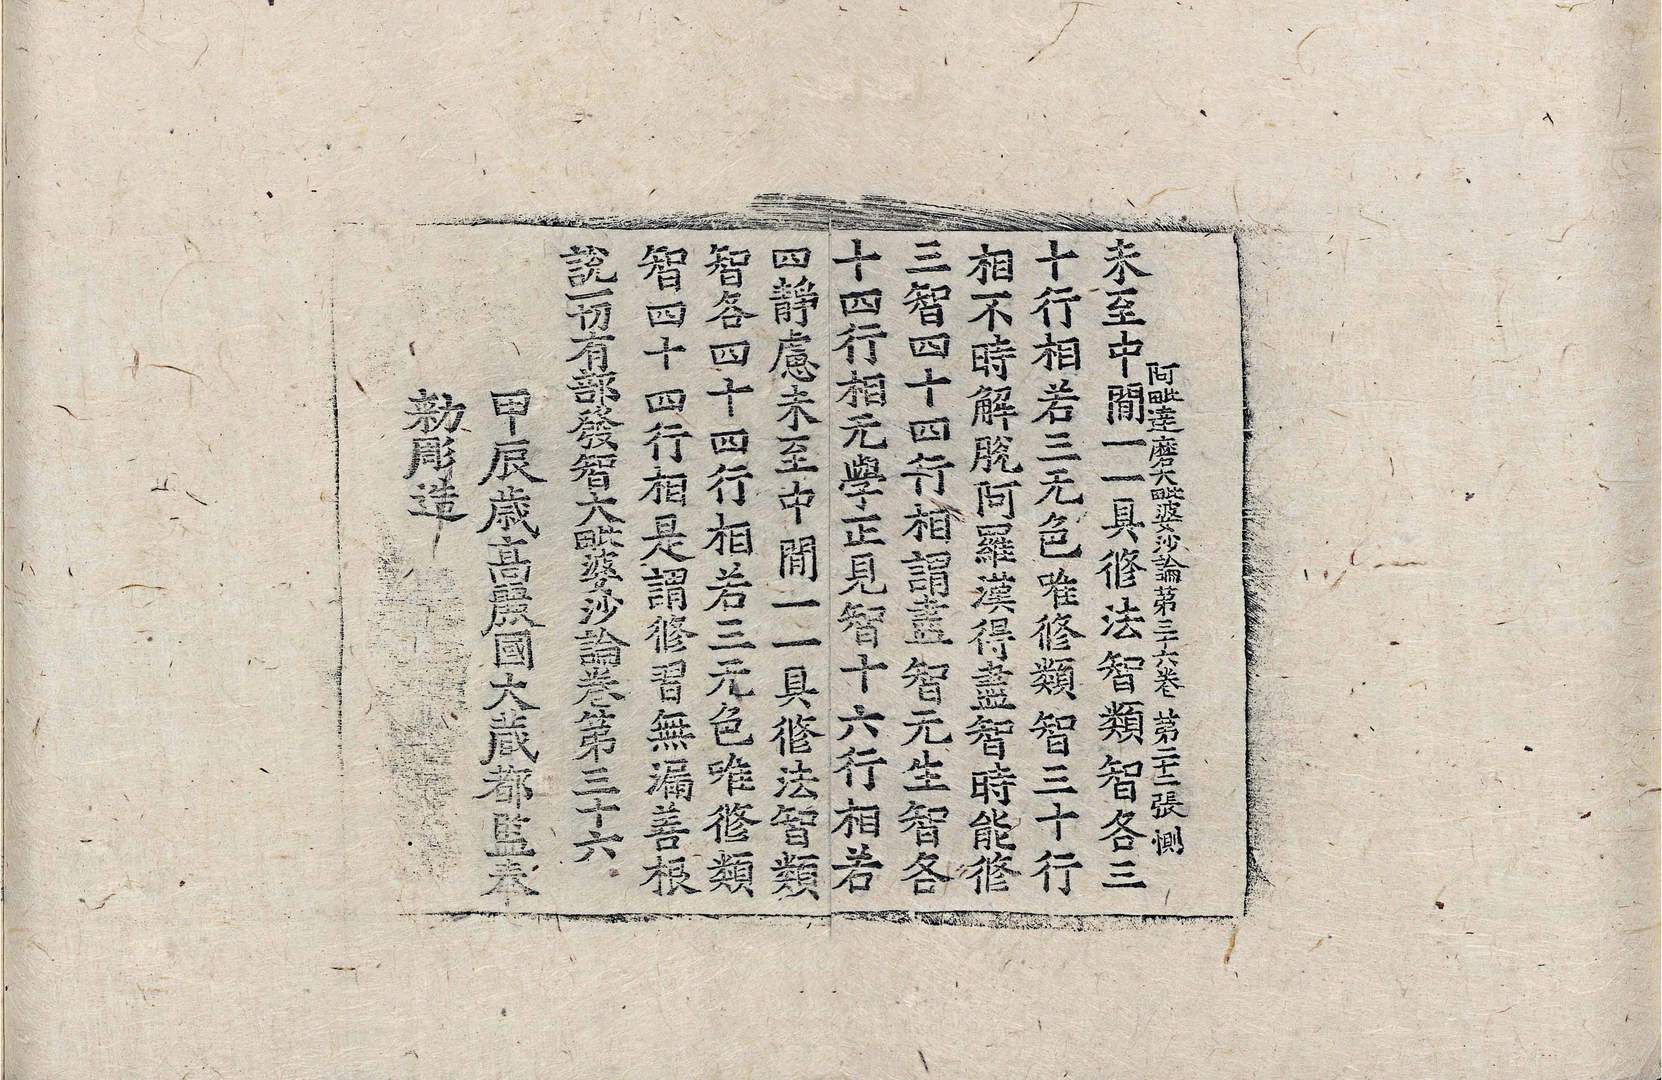 阿毗達磨大毗婆沙論第三十六卷 第二十二張 惻
未至中間一一具修法智類智各三
十行相若三无色唯修類智三十行
相不時解脫阿羅漢得盡智時能修
三智四十四行相謂盡智无生智各
十四行相无學正見智十六行相若
四靜慮未至中間一一具修法智類
智各四十四行相若三无色唯修類
智四十四行相是謂修習無漏善根
說一切有部發智大毗婆沙論卷第三十六
甲辰歲高麗國大藏都監奉
勅彫造